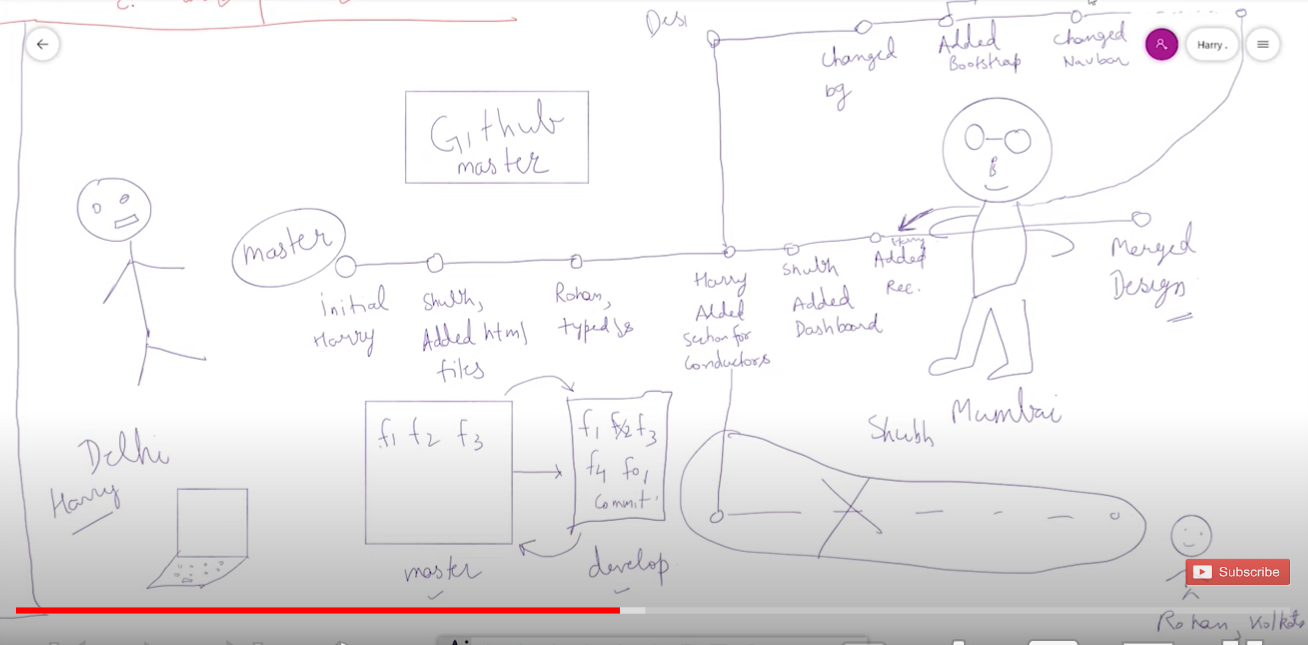 Desi
Changed
bg
Added
Bootstrap
Changed
Navbar
Harry .
Github
master
master
initial
Harry
Shubh,
Added html
files
Rohan,
typedjs
Harry
Added
Section for
Conductors
Shubh
Added
Dashboard
Harry
Added
Rec.
Merged
Design
Mumbai
Shubh
Delhi
Harry
f1 f2 f3
master
f1 f2 f3
f4 f01
Commit
develop
Subscribe
Rohan, Kolkata